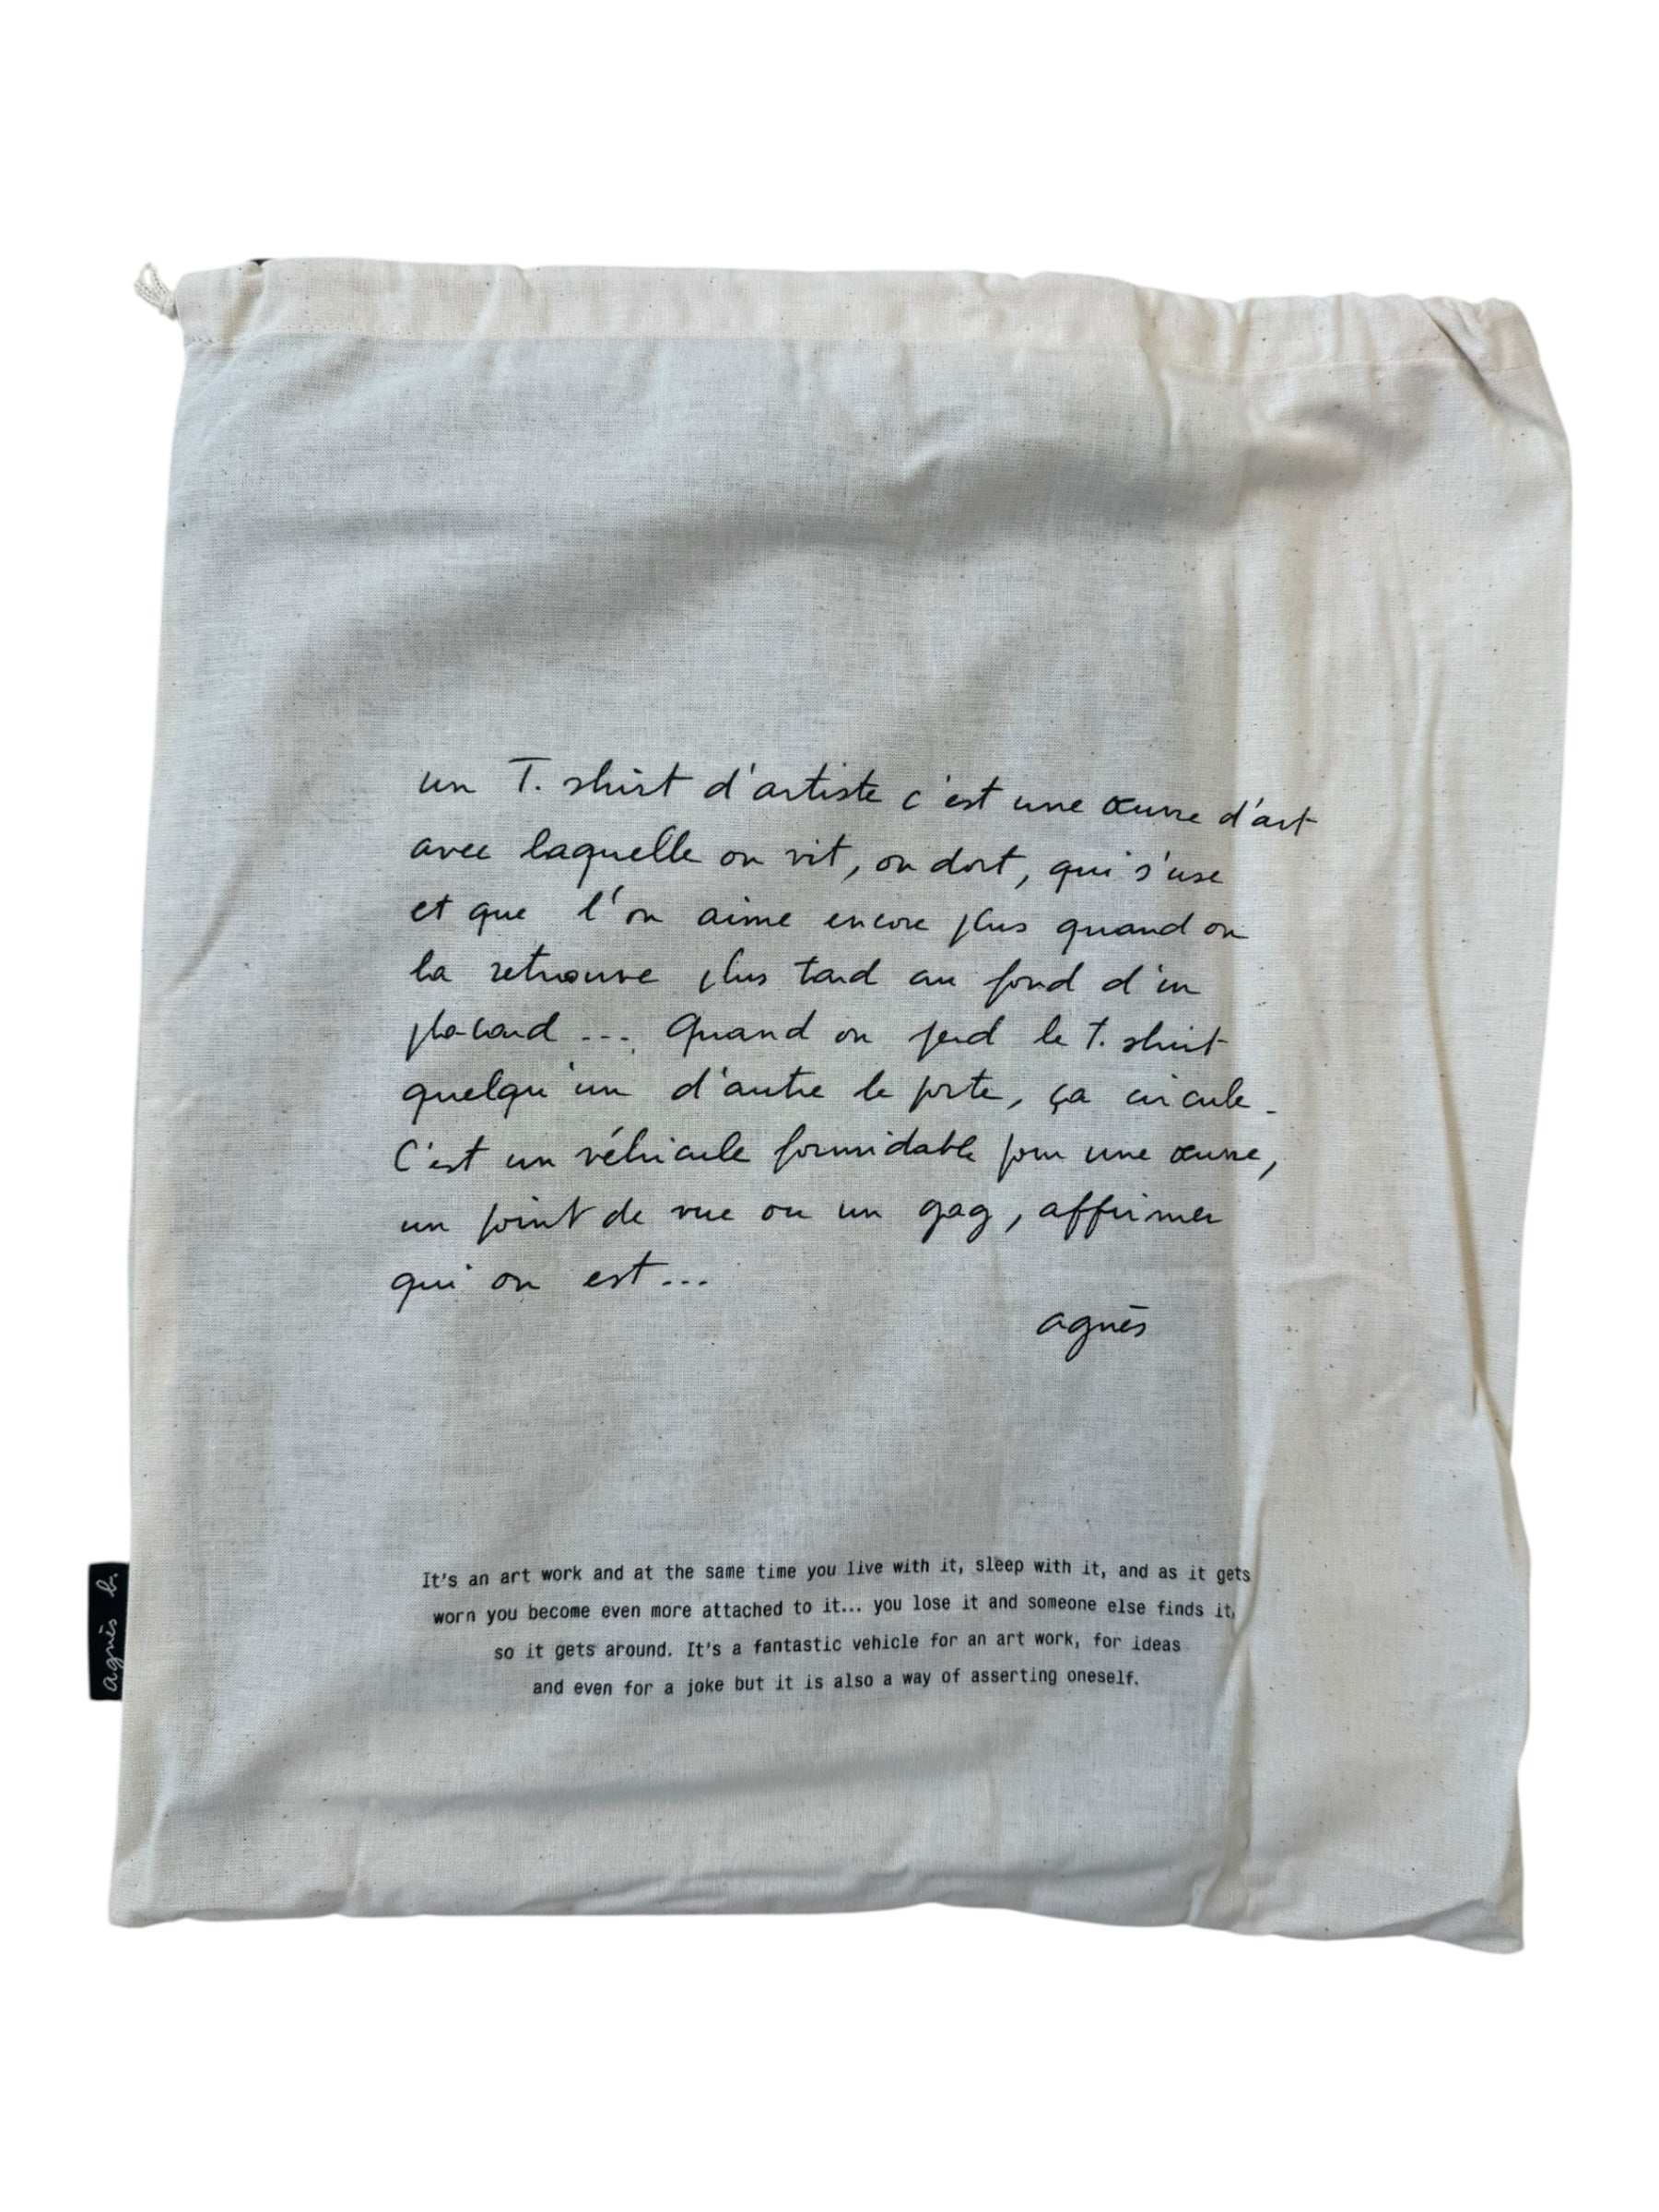 un T. shirt d'artiste c'est une œuvre d'art
avec laquelle on vit, on dort, qui s'use
et que l'on aime encore plus quand on
la retrouve plus tard au fond d'un
placard ... Quand on perd le T. shirt
quelqu'un d'autre le porte, ça circule -
C'est un véhicule formidable pour une œuvre,
un point de vue ou un gag, affirmer
qui on est ...
agnès
It's an art work and at the same time you live with it, sleep with it, and as it gets
worn you become even more attached to it... you lose it and someone else finds it,
so it gets around. It's a fantastic vehicle for an art work, for ideas
and even for a joke but it is also a way of asserting oneself.
agnès b.